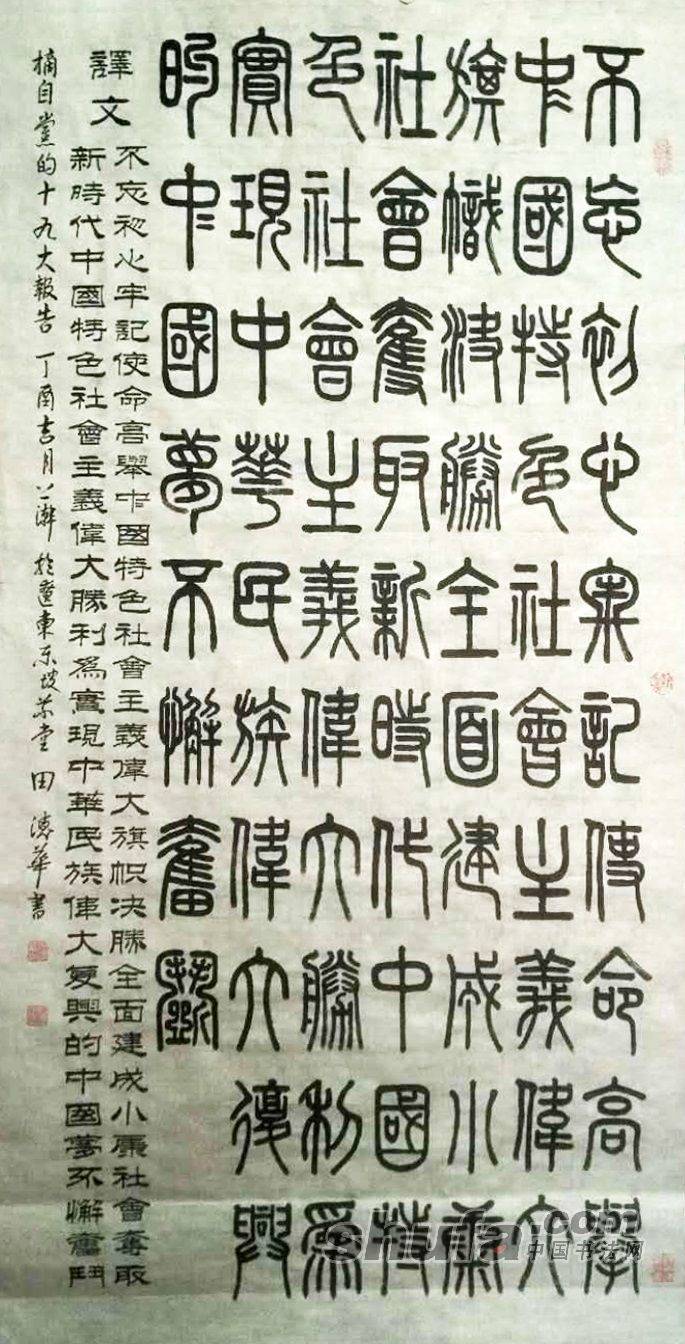 不忘初心牢記使命高舉
中國特色社會主義偉大
旗幟決勝全面建成小康
社會奪取新時代中國特
色社會主義偉大勝利爲
實現中華民族偉大復興
的中國夢不懈奮鬭
譯文
不忘初心牢記使命高舉中國特色社會主義偉大旗帜决勝全面建成小康社會奪取
新時代中國特色社會主義偉大勝利爲實現中華民族偉大复興的中國夢不懈奮鬥
摘自黨的十九大報告 丁酉吉月上澣於遼東東坡 田德華書
shufa.com
中国书法网